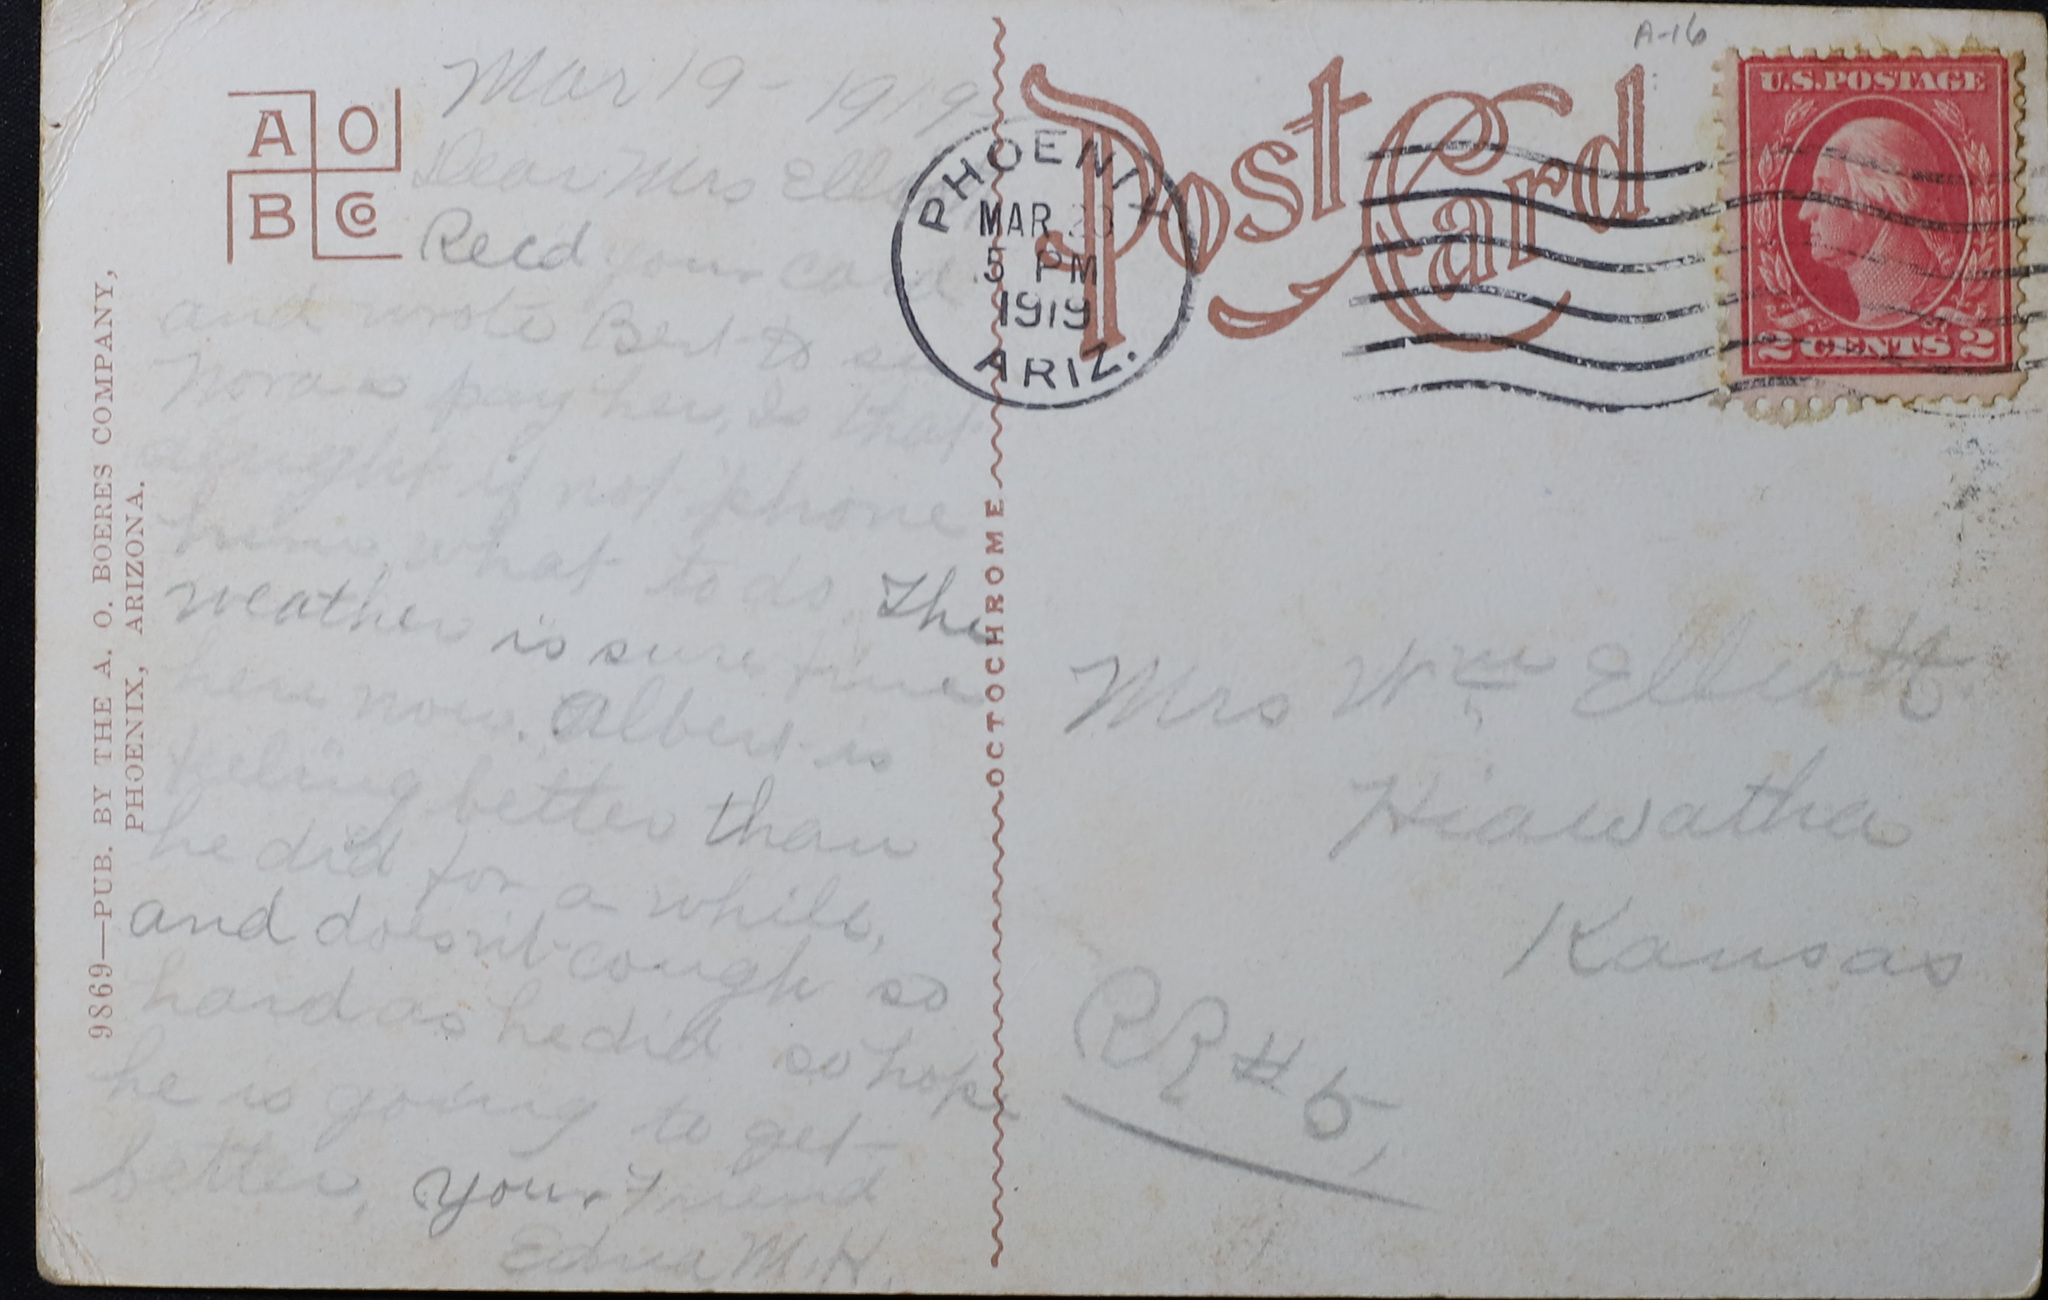 A O
B Co
9869—PUB. BY THE A. O. BOERES COMPANY,
PHOENIX, ARIZONA.
Mar 19 - 1919
Dear Mrs Elliott
Recd your card
and wrote Bert to see
Nora & pay her, Is that
alright if not 'phone
him, what to do. The
weather is sure fine
here now. Albert is
feeling better than
he did for a while,
and doesn't cough so
hard as he did so hope
he is going to get
better, Your Friend
Edna M. H.
OCTOCHROME
Post Card
A-16
PHOENIX
MAR 20
5 PM
1919
ARIZ.
U.S. POSTAGE
2 CENTS 2
Mrs Wm Elliott
Hiawatha
Kansas
RR # 5,